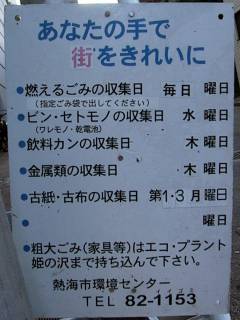 あなたの手で
街をきれいに
●燃えるごみの収集日 毎日 曜日
(指定ごみ袋で出してください)
●ビン・セトモノの収集日 水 曜日
(ワレモノ・乾電池)
●飲料カンの収集日 木 曜日
●金属類の収集日 木 曜日
●古紙・古布の収集日 第1・3月曜日
● 曜日
●粗大ごみ(家具等)はエコ・プラント
姫の沢まで持ち込んで下さい。
熱海市環境センター
TEL 82-1153